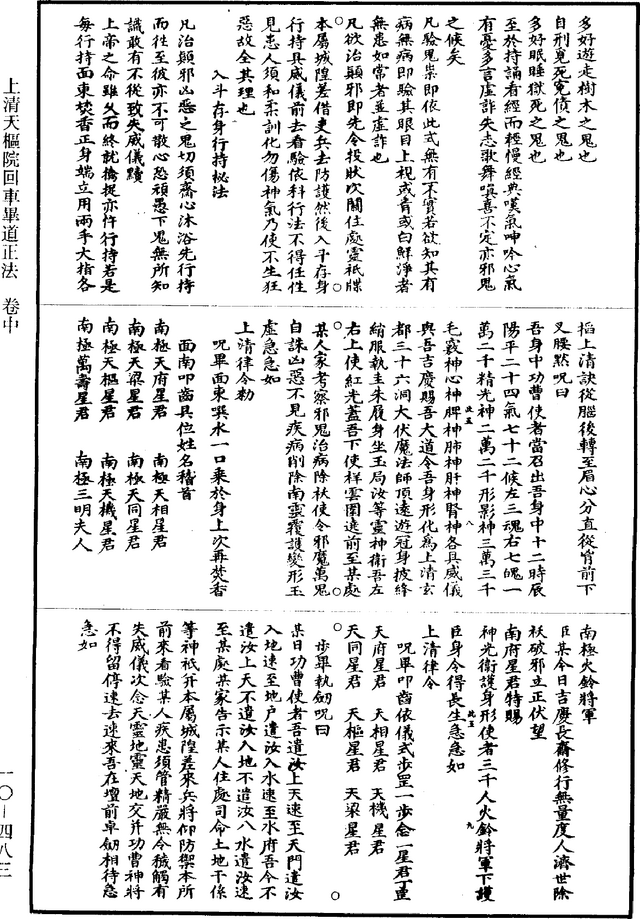 上清天樞院回車畢道正法　卷中
多好遊走樹木之鬼也
自刑冤死冤債之鬼也
多好眠睡獄死之鬼也
至於持誦看經而輕慢經典嘆氣呻吟心氣
有憂多言虛詐失志歌舞嗔喜不定亦邪鬼
之候矣
凡驗鬼祟即依此式無有不實若欲知其有
病無病即驗其眼目上視或青或白鮮淨者
無患如常者並虛詐也
凡欲治顛邪即先令投狀次關住處靈祇牒
本屬城隍差借吏兵去防護然後入斗存身
行持具威儀前去看驗依科行法不得任性
見患人須和柔訓化勿傷神氣乃使不生狂
惡故全其理也
入斗存身行持祕法
凡治顛邪凶惡之鬼切須齋心沐浴先行持
而往至彼亦不可散心恐頑愚下鬼無所知
識敢有不從致失威儀賾
上帝之命雖久而終就擒捉亦忤行持若是
每行持面東焚香正身端立用兩手大指各
搯上清訣從腦後轉至眉心分直從肯前下
叉腰黙呪曰
吾身中功曹使者當召出吾身中十二時辰
陽平二十四氣七十二候左三魂右七魄一
萬二千精光神二萬二千形影神三萬三千
毛竅神心神脾神肺神肝神腎神各具威儀
與吾吉慶賜吾大道令吾身形化為上清玄
都三十六洞大伏魔法師頂遠遊冠身披絳
綃服執圭朱履身坐玉局汝等靈神衛吾左
右上使紅光蓋吾下使祥雲圍遶前至某處
某人家考察邪鬼治病除祅使令邪魔萬鬼
自誅凶惡不見疾病削除南靈覆護變形玉
虛急急如
上清律令勑
呪畢面東噀水一口乘於身上次再焚香
面南叩齒具位姓名稽首
南極天府星君　南極天相星君
南極天梁星君　南極天同星君
南極天樞星君　南極天機星君
南極萬壽星君　南極三明夫人
南極火鈴將軍
臣某今日吉慶長齋修行無量度人濟世除
祅破邪立正伏望
南府星君特賜
神光衛護身形使者三千人火鈴將軍下護
臣身令得長生急急如
上清律令
呪畢叩齒依儀式步罡一步念一星君一直
天府星君　天相星君　天機星君
天同星君　天樞星君　天梁星君
步畢執劒呪曰
某日功曹使者吾遣汝上天速至天門遣汝
入地速至地戶遣汝入水速至水府吾今不
遣汝上天不遣汝入地不遣汝入水遣汝速
至某處某家告示某人住處司命土地干係
等神祇并本屬城隍差來兵將仰防禦本所
前來看驗某人疾患須管精嚴無令穢觸有
失威儀次念天靈地靈天地交并功曹神將
不得留停速去速來吾在壇前卓劒相待急
急如
一〇—四八三